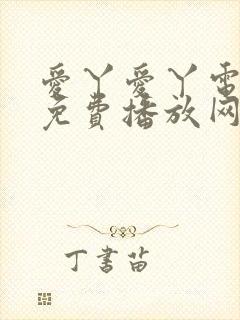 愛丫愛丫電
免費播放网
丁書苗